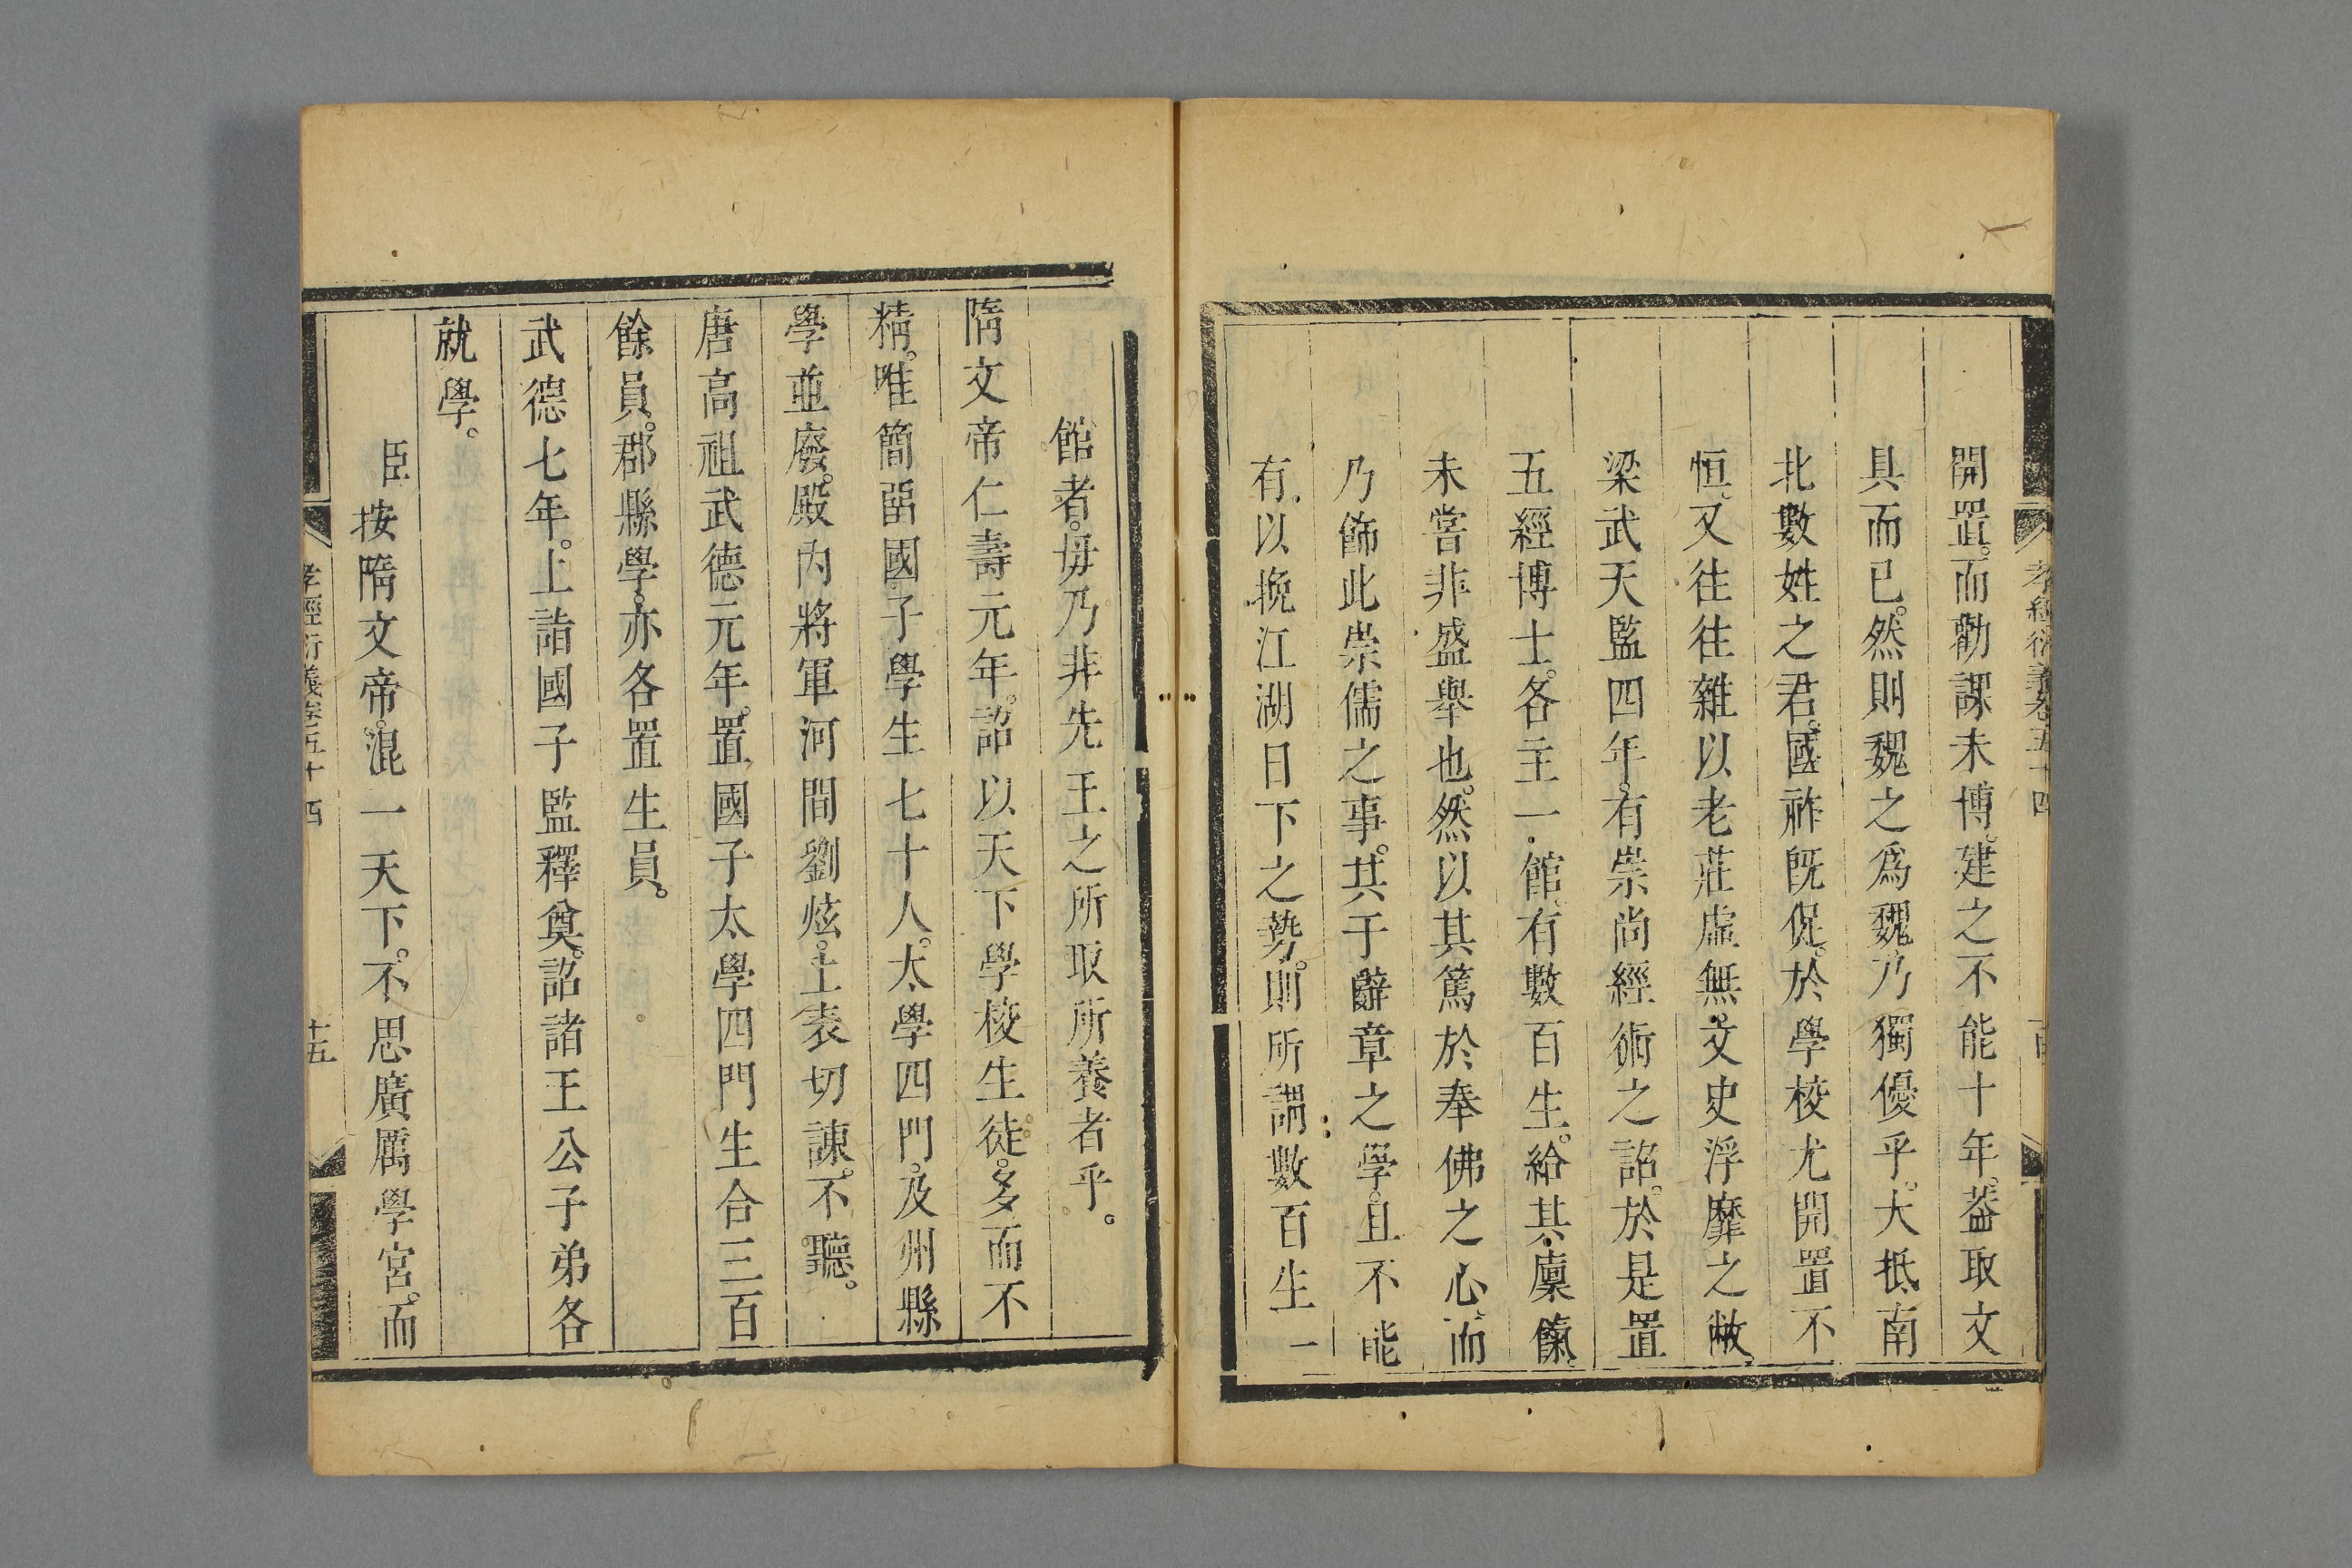 開置。而勸課未博。建之不能十年。葢取文
具而已。然則魏之爲魏。乃獨優乎。大抵南
北數姓之君。國祚旣促。於學校尤開置不
恒。又往往雜以老莊虛無。文史浮靡之敝。
梁武天監四年。有崇尚經術之詔。於是置
五經博士。各主一館。有數百生。給其廩餼。
未嘗非盛舉也。然以其篤於奉佛之心。而
乃飾此崇儒之事。其于辭章之學。且不能
有。以挽江湖日下之勢。則所謂數百生一
館者。毋乃非先王之所取所養者乎。
隋文帝仁壽元年。詔以天下學校生徒。多而不
精。唯簡畱國子學生七十人。太學四門。及州縣
學並廢。殿內將軍河間劉炫。上表切諫。不聽。
唐高祖武德元年。置國子太學四門生合三百
餘員。郡縣學。亦各置生員。
武德七年。上詣國子監釋奠。詔諸王公子弟各
就學。
臣按隋文帝。混一天下。不思廣厲學宮。而
孝經衍義卷五十四
十五